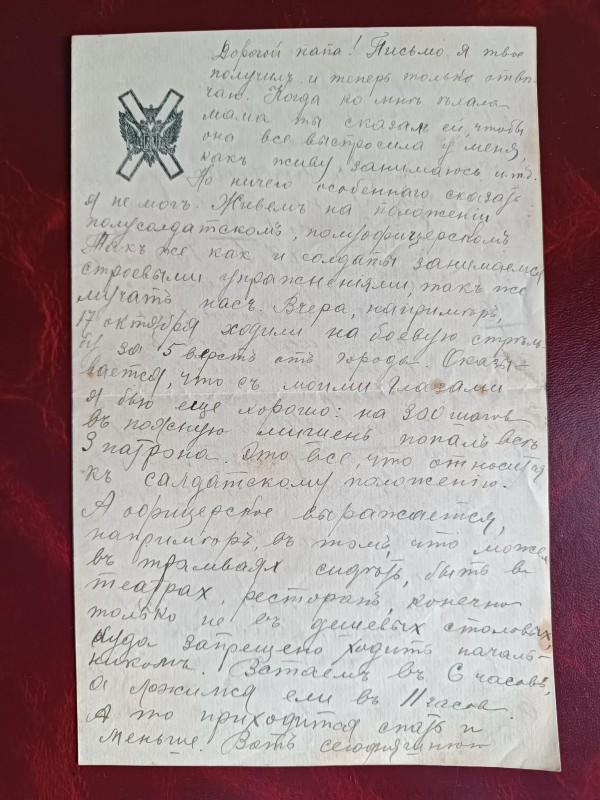 Дорогой папа! Письмо я твое
получилъ и теперь только отвѣ-
чаю. Когда ко мнѣ ѣхала
мама ты сказалъ ей, чтобы
она все выспросила у меня
какъ живу, занимаюсь и.т.д.
Но ничего особеннаго сказать
я не могъ. Живемъ на положении
полусолдатскомъ, полуофицерскомъ
Такъ же как и солдаты занимаемся
строевыми упражнениями, такъ же
мучатъ насъ. Вчера, напримѣръ,
17 октября ходили на боевую стрѣль
бу за 5 верстъ отъ города. Оказы-
вается, что съ моими глазами
я бью еще хорошо: на 300 шагов
въ поясную мишень попалъ всѣ
3 патрона. Это все, что относится
къ салдатскому положению.
А офицерское выражается,
напримѣръ, въ томъ, что можем
въ трамваях сидѣть, быть въ
театрах, ресторанѣ, конечно
только не въ дешевых столовых,
куда запрещено ходить началь-
никомъ. Встаемъ въ 6 часовъ,
а ложимся спать въ 11 часов.
А то приходится спать и
меньше. Вотъ сегодняшнюю